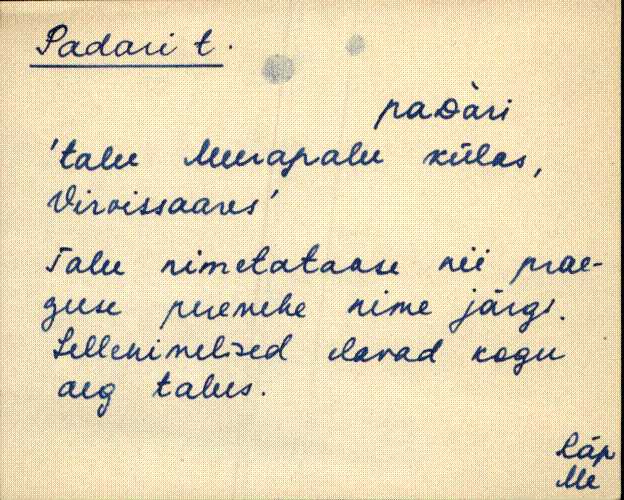 Padari t.
paᴅ̀ari
'talu Meerapalu külas,
Virvissaares'
Talu nimetatakse nii prae-
guse peremehe nime järgi.
Sellenimelised elavad kogu
aeg talus.
Räp
Me